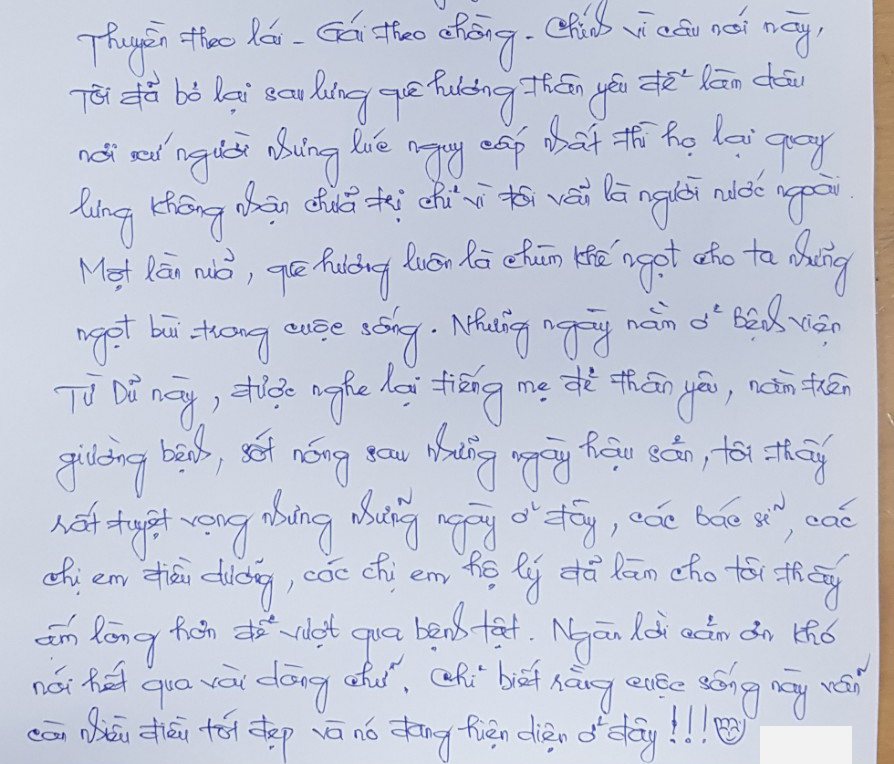 Thuyền theo lái - Gái theo chồng. Chính vì câu nói này,
Tôi đã bỏ lại sau lưng quê hương thân yêu để làm dâu
nơi xứ người nhưng lúc nguy cấp nhất thì họ lại quay
lưng không nhận chữa trị chỉ vì tôi vẫn là người nước ngoài.
Một lần nữa, quê hương luôn là chùm khế ngọt cho ta những
ngọt bùi trong cuộc sống. Những ngày nằm ở Bệnh viện
Từ Dũ này, được nghe lại tiếng mẹ đẻ thân yêu, nằm trên
giường bệnh, sốt nóng sau những ngày hậu sản, tôi thấy
rất tuyệt vọng nhưng những ngày ở đây, các Bác sĩ, các
chị em điều dưỡng, các chị em hộ lý đã làm cho tôi thấy
ấm lòng hơn để vượt qua bệnh tật. Ngàn lời cảm ơn khó
nói hết qua vài dòng chữ. Chỉ biết rằng cuộc sống này vẫn
còn nhiều điều tốt đẹp và nó đang hiện diện ở đây!!!